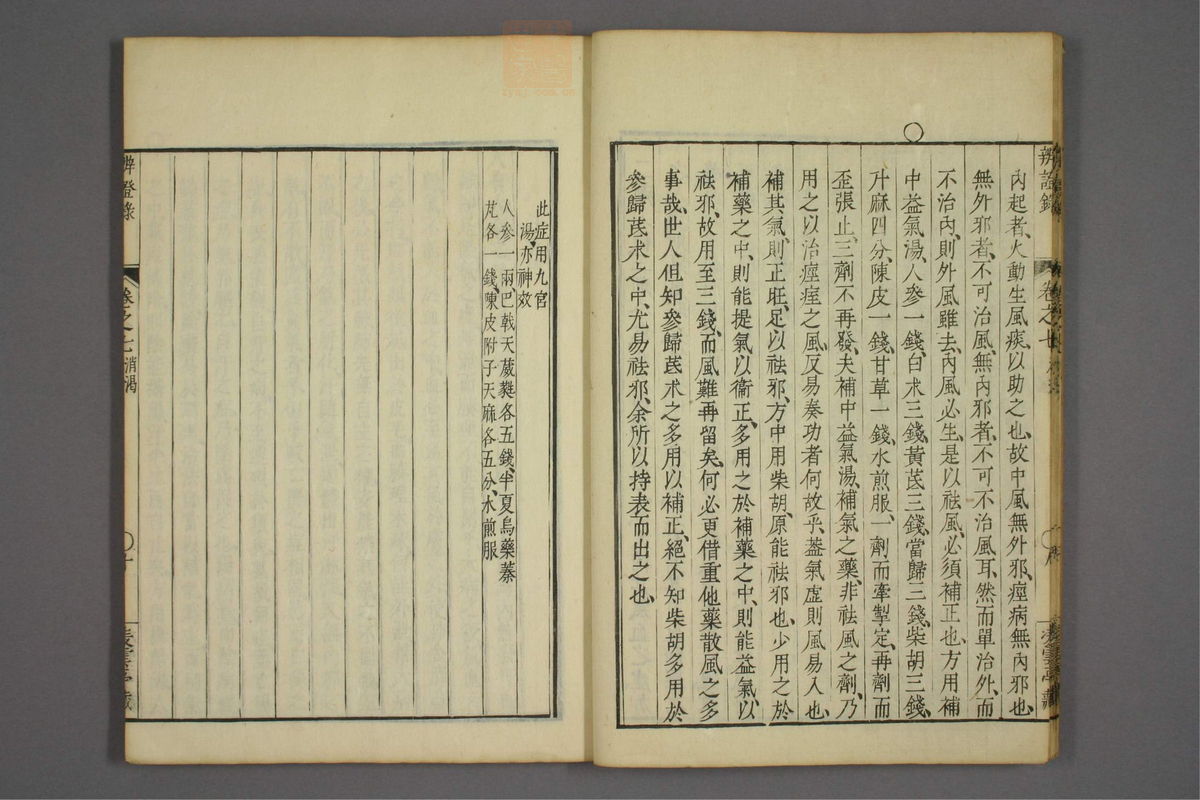 內起者、火動生風、痰以助之也、故中風無外邪、痙病無內邪也、
無外邪者、不可治風、無內邪者、不可不治風耳、然而單治外、而
不治內、則外風雖去、內風必生、是以祛風、必須補正也、方用補
中益氣湯、人參一錢、白术三錢、黃芪三錢、當歸三錢、柴胡三錢、
升麻四分、陳皮一錢、甘草一錢、水煎服、一劑而牽掣定、再劑而
歪張止、三劑不再發、夫補中益氣湯、補氣之藥、非祛風之劑、乃
用之以治痙痓之風、反易奏功者、何故乎、葢氣虛則風易入也、
補其氣、則正旺、足以祛邪、方中用柴胡、原能祛邪也、少用之於
補藥之中、則能提氣以衞正、多用之於補藥之中、則能益氣、以
祛邪、故用至三錢、而風難再留矣、何必更借重他藥散風之多
事哉、世人但知參歸芪术之多用以補正、絕不知柴胡多用於
參歸芪术之中、尤易祛邪、余所以持表而出之也、
辨證錄
卷之七
此症用九官
湯、亦神效
人參一兩巴戟天葳蕤各五錢、半夏烏藥蓁
芃各一錢、陳皮附子天麻各五分、水煎服
辨證錄
卷之七 消渴